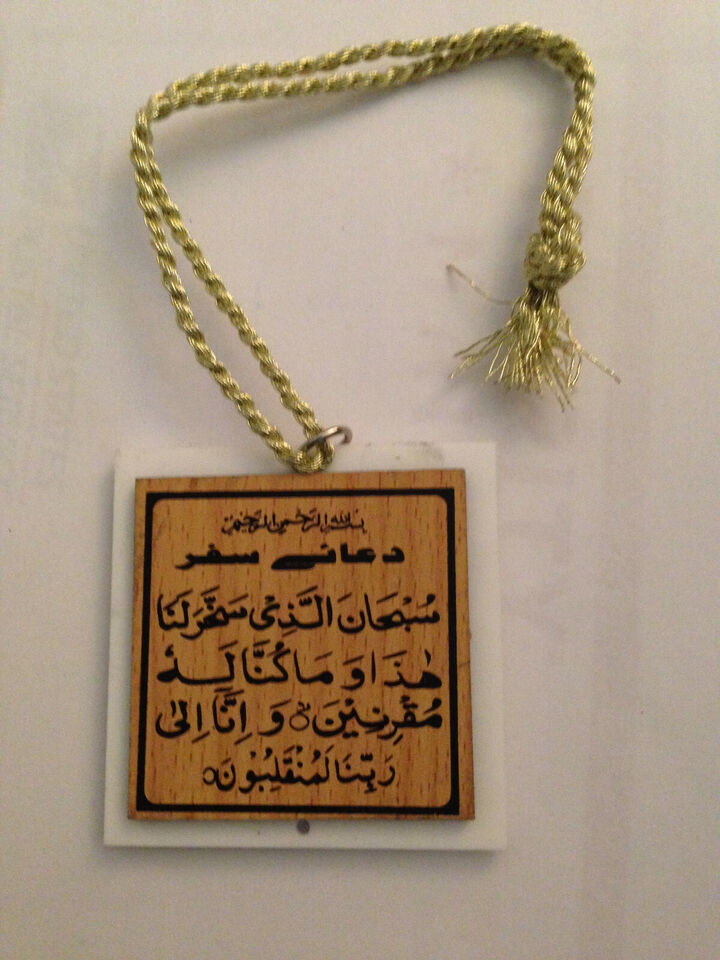 بسم الله الرحمن الرحيم
دعائے سفر
سُبْحَانَ الَّذِیْ سَخَّرَ لَنَا
هٰذَا وَ مَا كُنَّا لَهٗ
مُقْرِنِیْنَ ○ وَ اِنَّا اِلٰی
رَبِّنَا لَمُنْقَلِبُوْنَ ○